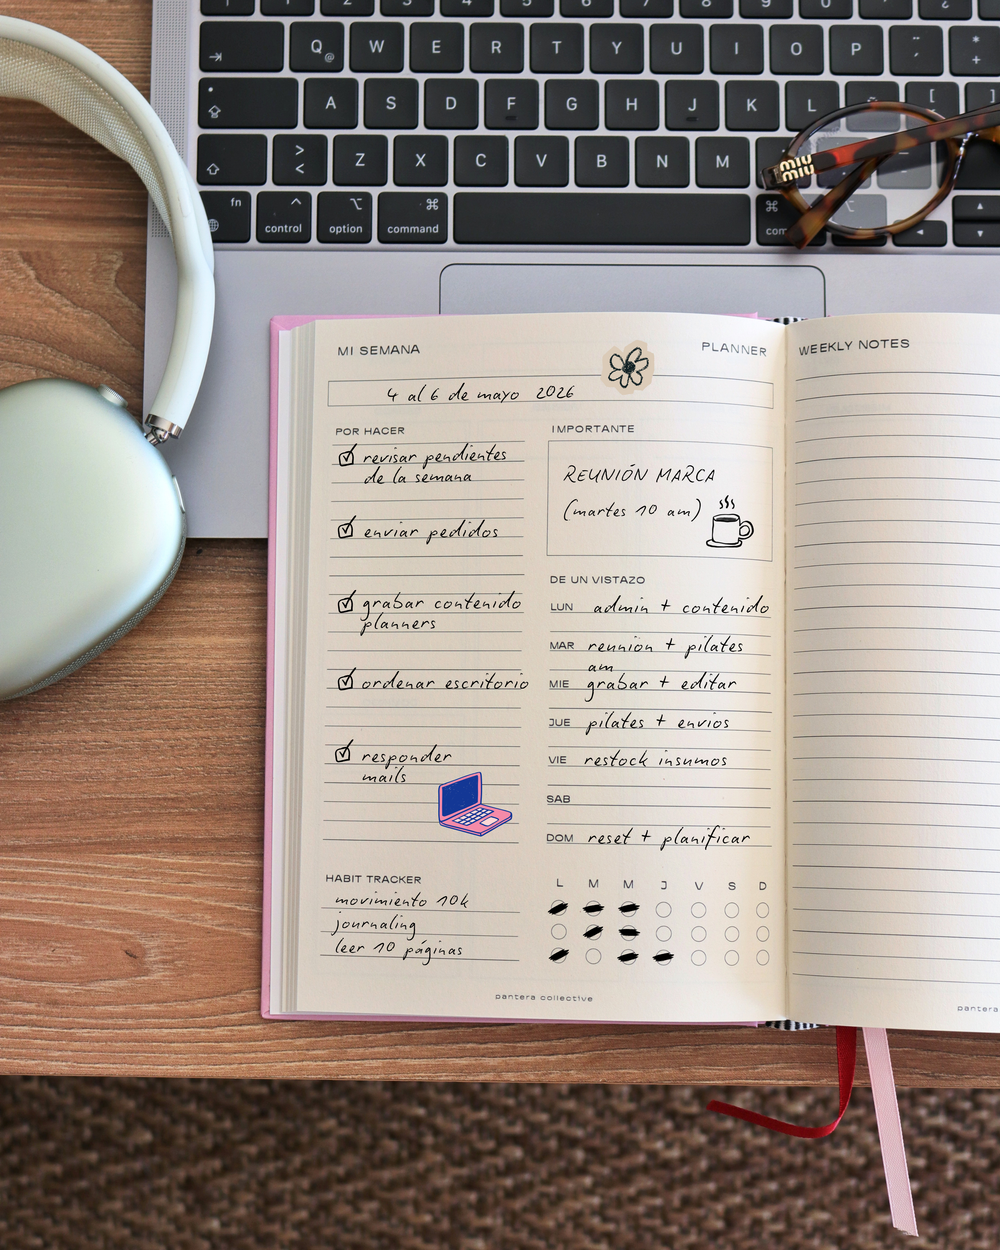 Q @ W E R T Y U I O P
A S D F G H J K L Ñ
> < Z X C V B N M
fn control option command
miu
miu
MI SEMANA PLANNER
4 al 6 de mayo 2026
POR HACER
revisar pendientes
de la semana
enviar pedidos
grabar contenido
planners
ordenar escritorio
responder
mails
IMPORTANTE
REUNIÓN MARCA
(martes 10 am)
DE UN VISTAZO
LUN admin + contenido
MAR reunión + pilates
am
MIE grabar + editar
JUE pilates + envios
VIE restock insumos
SAB
DOM reset + planificar
HABIT TRACKER
movimiento 10k
journaling
leer 10 páginas
L M M J V S D
pantera collective
WEEKLY NOTES
pantera